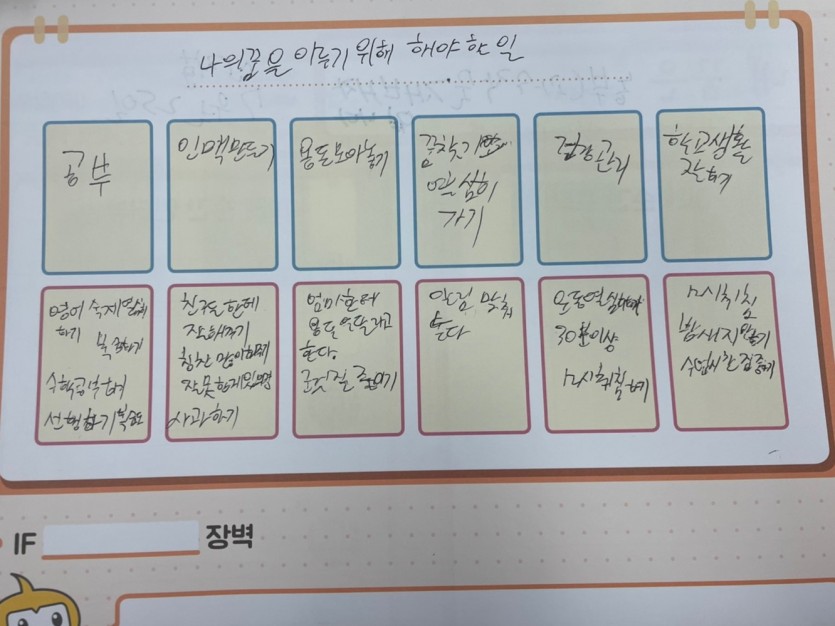 나의꿈을 이루기 위해 해야 한 일
공부
인맥만드기
용돈모아놓기
꿈찾기
열심히
가기
건강관리
학교생활
잘하기
영어 숙제열심히
하기
복습하기
수학공부하기
선행하기
친구들한테
잘해주기
칭찬 많이해주기
잘못한게있으면
사과하기
엄마한테
용돈 달라고
한다.
군것질 줄이기
알림 맞춰
둔다
운동열심히
30분이상
12시취침하기
12시취침
밤새지않기
수업시간집중하기
IF
장벽